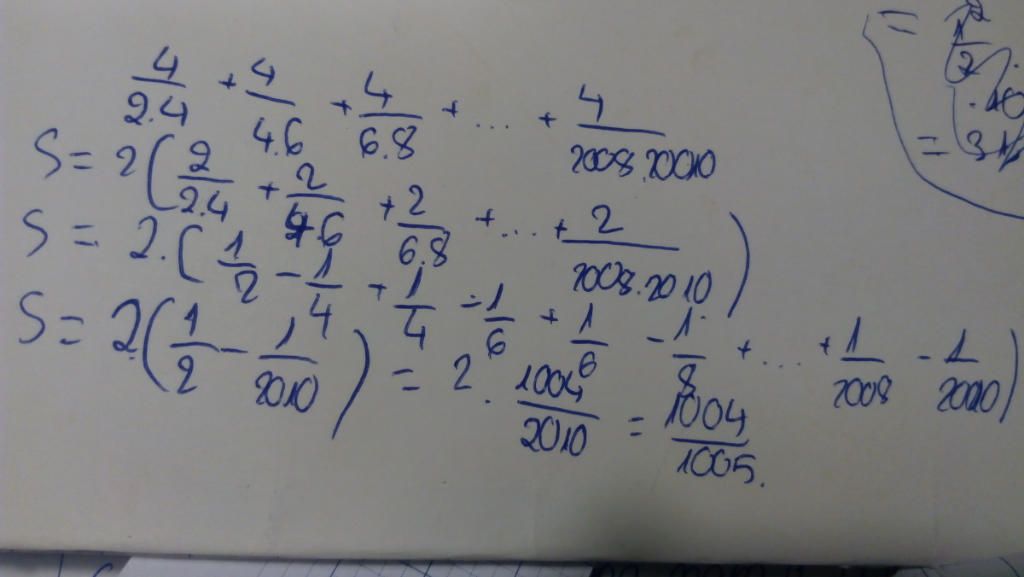 4/2.4 + 4/4.6 + 4/6.8 + ... + 4/2008.20010
S = 2(2/2.4 + 2/4.6 + 2/6.8 + ... + 2/2008.2010)
S = 2.(1/2 - 1/4 + 1/4 - 1/6 + 1/6 - 1/8 + ... + 1/2008 - 1/2010)
S = 2(1/2 - 1/2010) = 2. 1004/2010 = 1004/1005.